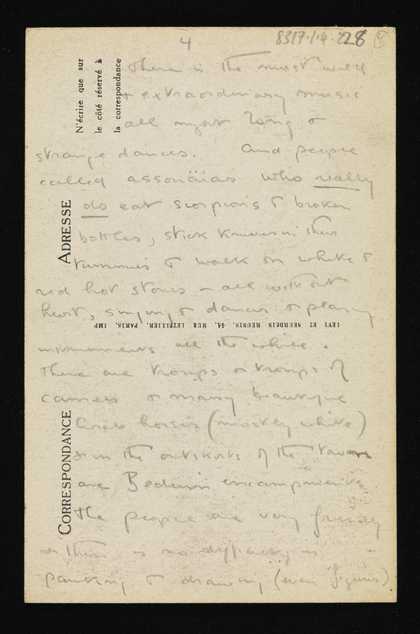 4
8317.1.4.228
there is the most weird
+ extraordinary music
all night long &
strange dances. And people
called assouaias who really
do eat scorpions & broken
bottles, stick knives in their
tummies & walk on white &
red hot stones – all without
hurt, singing & dancing & playing
instruments all the while.
There are troops & troops of
camels & many beautiful
Arab horses (mostly white)
& on the outskirts of the town
are Bedouin encampments
The people are very friendly
& there is no difficulty in
painting & drawing (even figures)
N'écrire que sur
le côté réservé à
la correspondance
ADRESSE
CORRESPONDANCE
LEVY ET NEURDEIN REUNIS, 44, RUE LETELLIER, PARIS, IMP